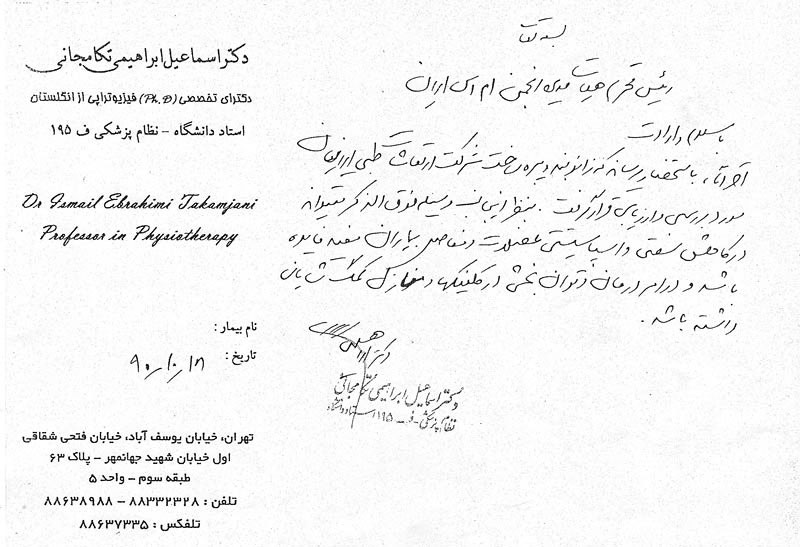 دکتر اسماعیل ابراهیمی تکامجانی
دکترای تخصصی (Ph.D) فیزیوتراپی از انگلستان
استاد دانشگاه - نظام پزشکی ف ۱۹۵
Dr Ismail Ebrahimi Takamjani
Professor in Physiotherapy
نام بیمار :
تاریخ : ۹۰/۱۰/۱۸
تهران، خیابان یوسف آباد، خیابان فتحی شقاقی
اول خیابان شهید جهانمهر - پلاک ۶۳
طبقه سوم - واحد ۵
تلفن : ۸۸۳۳۲۳۲۸ - ۸۸۶۳۸۹۸۸
تلفکس : ۸۸۶۳۷۳۳۵
بسمه تعالی
رئیس محترم هیات مدیره انجمن ام اس ایران
با سلام و ارادت
احتراماً، باستحضار میرساند که زانوبند ویبره ساخت شرکت ارتعاشات طبی ایرانیان
مورد بررسی و ارزیابی قرار گرفت. بنظر اینجانب وسیله فوق الذکر میتواند
در کاهش سفتی و اسپاستیسیتی عضلات و مفاصل بیماران مفید فایده
باشد و در امر درمان و توان بخشی در کلینیکها و منازل کمک شایان
داشته باشد.
دکتر ابراهیمی
دکتر اسماعیل ابراهیمی تکامجانی
نظام پزشکی - ف - ۱۹۵ استاد دانشگاه